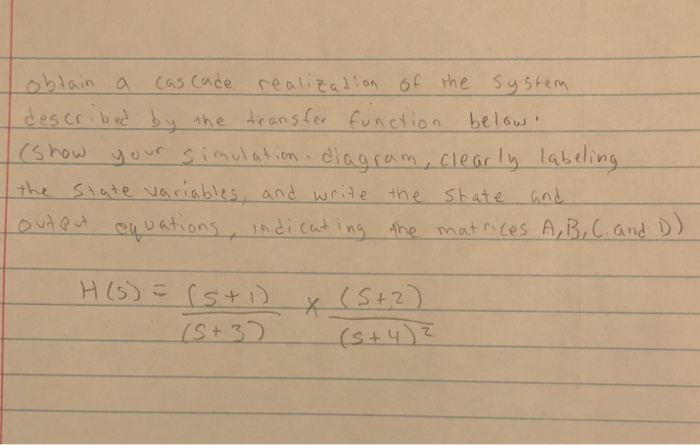 obtain a cascade realization of the system
described by the transfer function below.
(show your simulation diagram, clearly labeling
the state variables, and write the state and
output equations, indicating the matrices A, B, C and D)
H(s) = (s+1)/(s+3) x (s+2)/(s+4)²